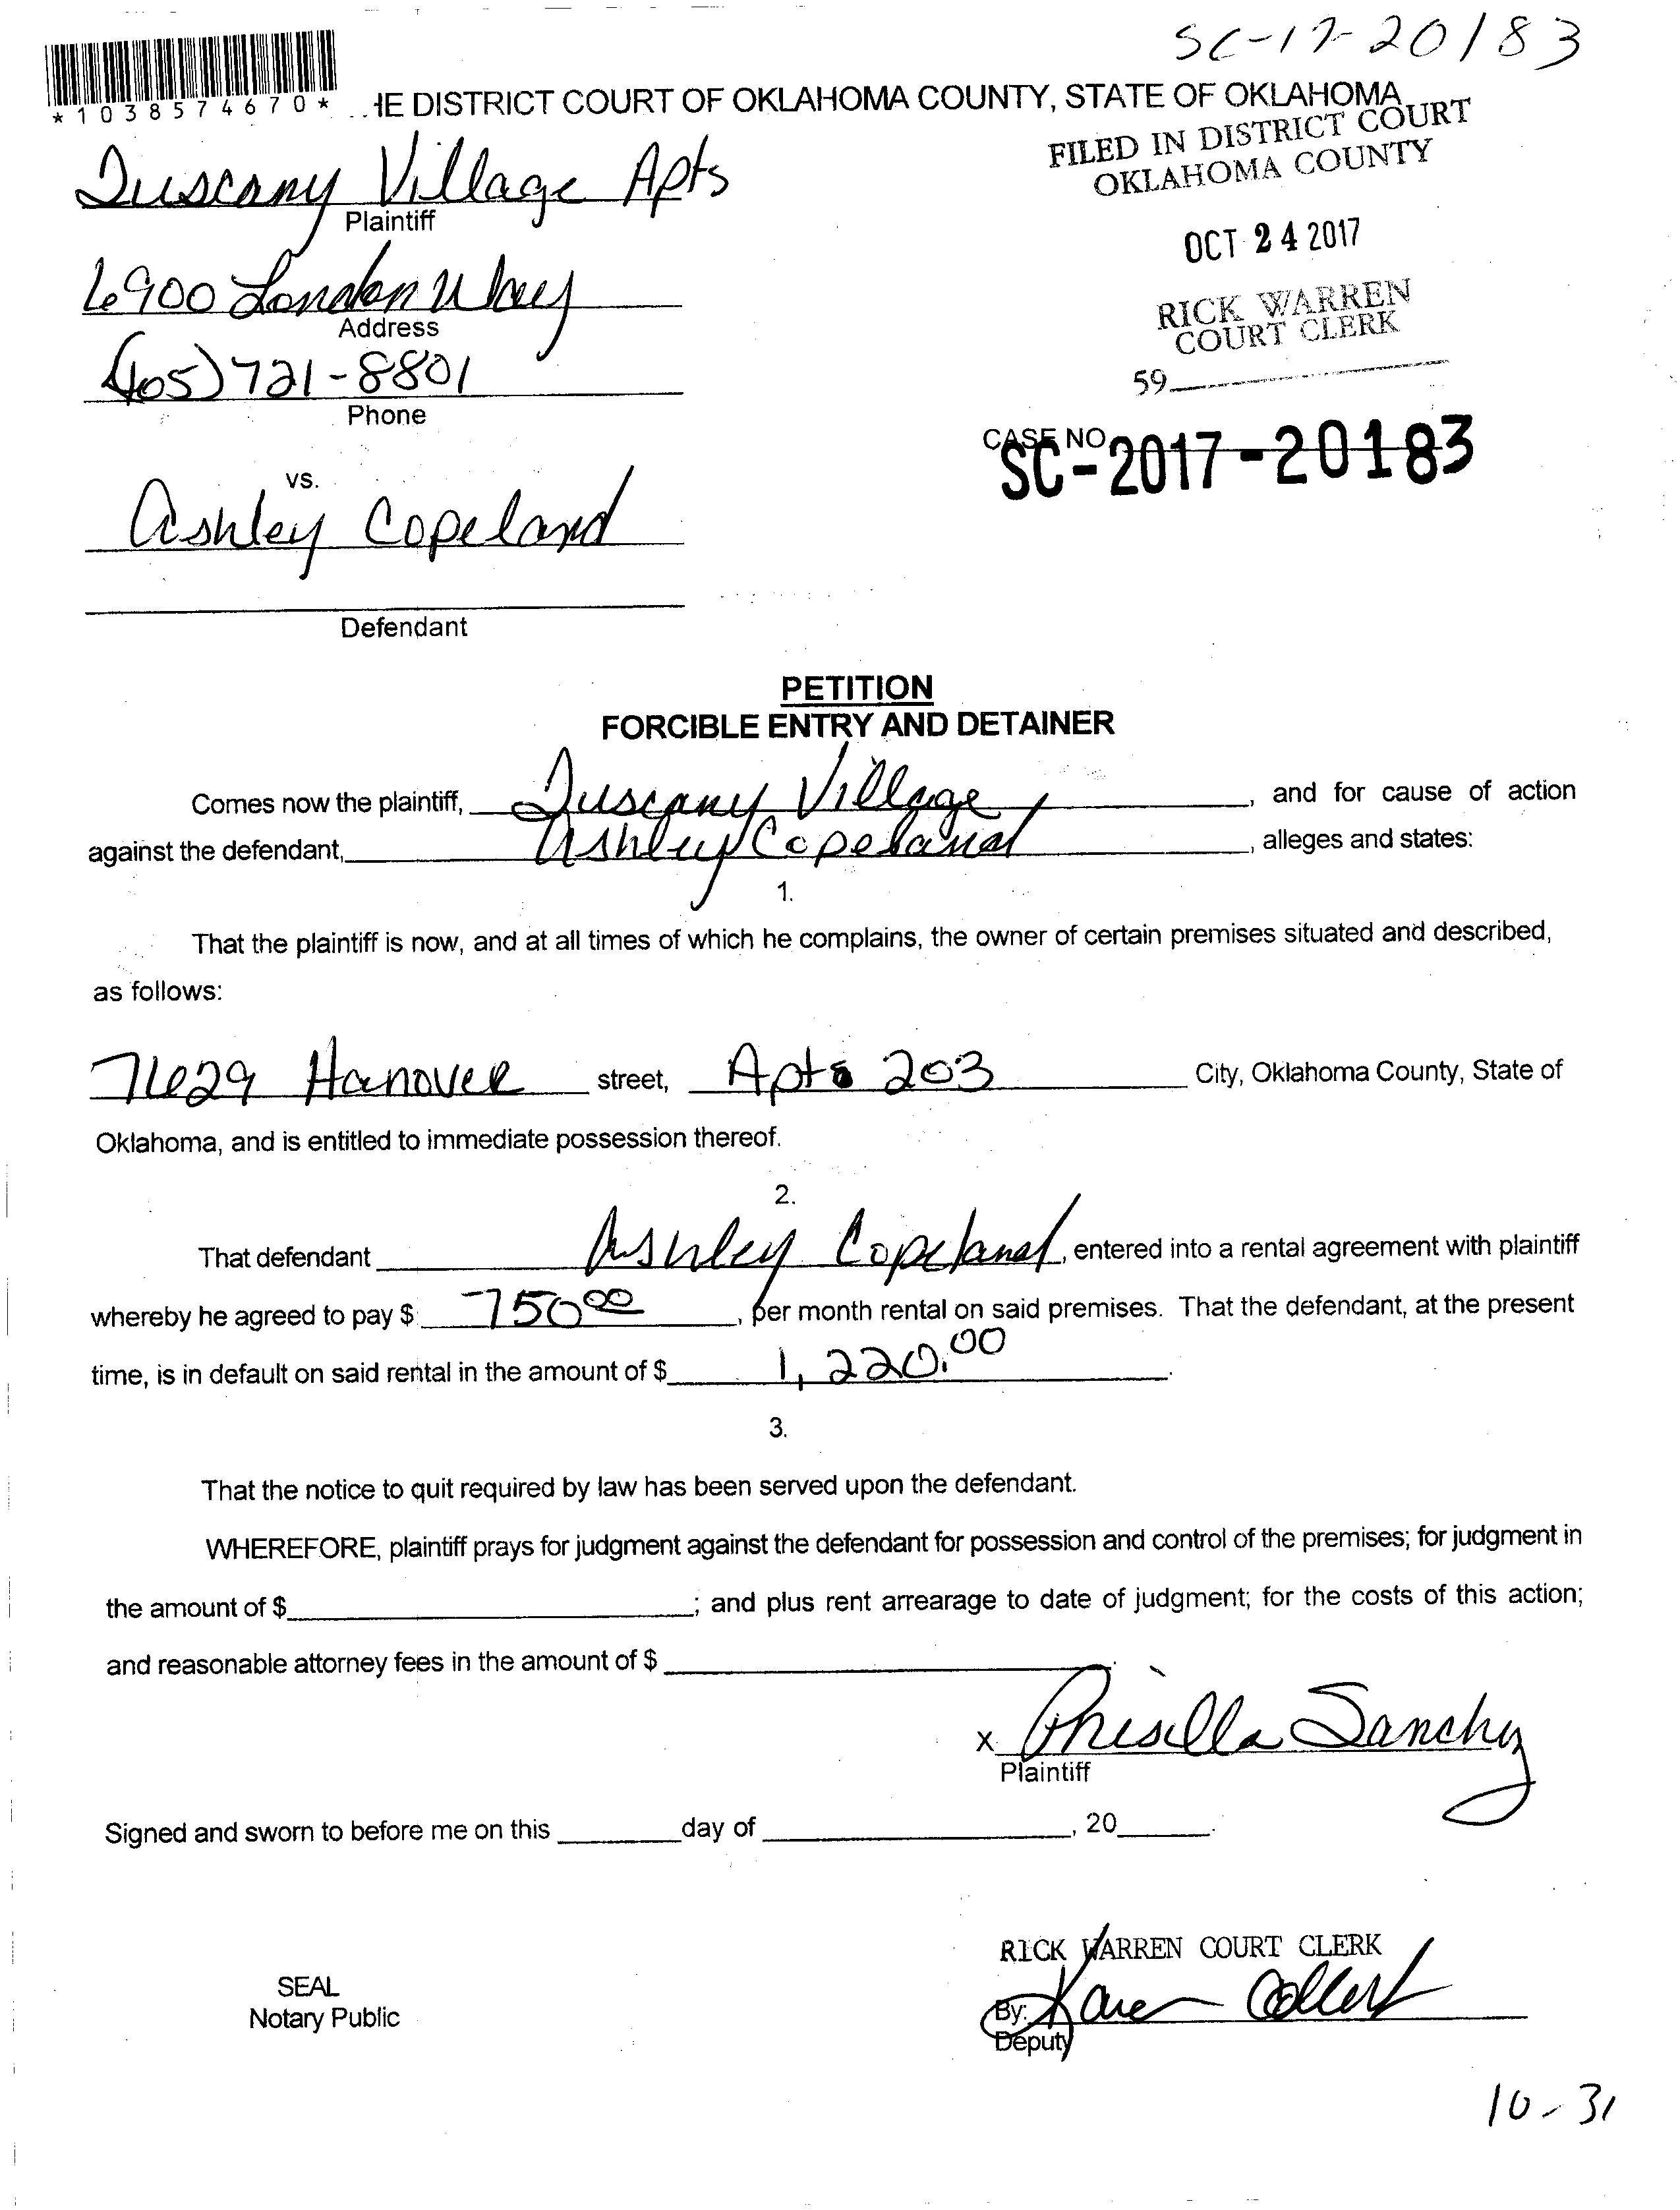 SC-17-20183
*1038574670*
HE DISTRICT COURT OF OKLAHOMA COUNTY, STATE OF OKLAHOMA
FILED IN DISTRICT COURT
OKLAHOMA COUNTY
Tuscany Village Apts
Plaintiff
OCT 24 2017
6900 London Way
Address
RICK WARREN
COURT CLERK
(405) 721-8801
Phone
59
CASE NO.
SC-2017-20183
vs.
Ashley Copeland
Defendant
PETITION
FORCIBLE ENTRY AND DETAINER
Comes now the plaintiff, Tuscany Village, and for cause of action
against the defendant, Ashley Copeland, alleges and states:
1.
That the plaintiff is now, and at all times of which he complains, the owner of certain premises situated and described,
as follows:
7629 Hanover street, Apts 203 City, Oklahoma County, State of
Oklahoma, and is entitled to immediate possession thereof.
2.
That defendant Ashley Copeland, entered into a rental agreement with plaintiff
whereby he agreed to pay $ 750 00, per month rental on said premises. That the defendant, at the present
time, is in default on said rental in the amount of $ 1,220.00.
3.
That the notice to quit required by law has been served upon the defendant.
WHEREFORE, plaintiff prays for judgment against the defendant for possession and control of the premises; for judgment in
the amount of $ ; and plus rent arrearage to date of judgment; for the costs of this action;
and reasonable attorney fees in the amount of $
x Prisilla Sanchez
Plaintiff
Signed and sworn to before me on this day of , 20 .
RICK WARREN COURT CLERK
SEAL
Notary Public
By: Karen Collert
Deputy
10-31